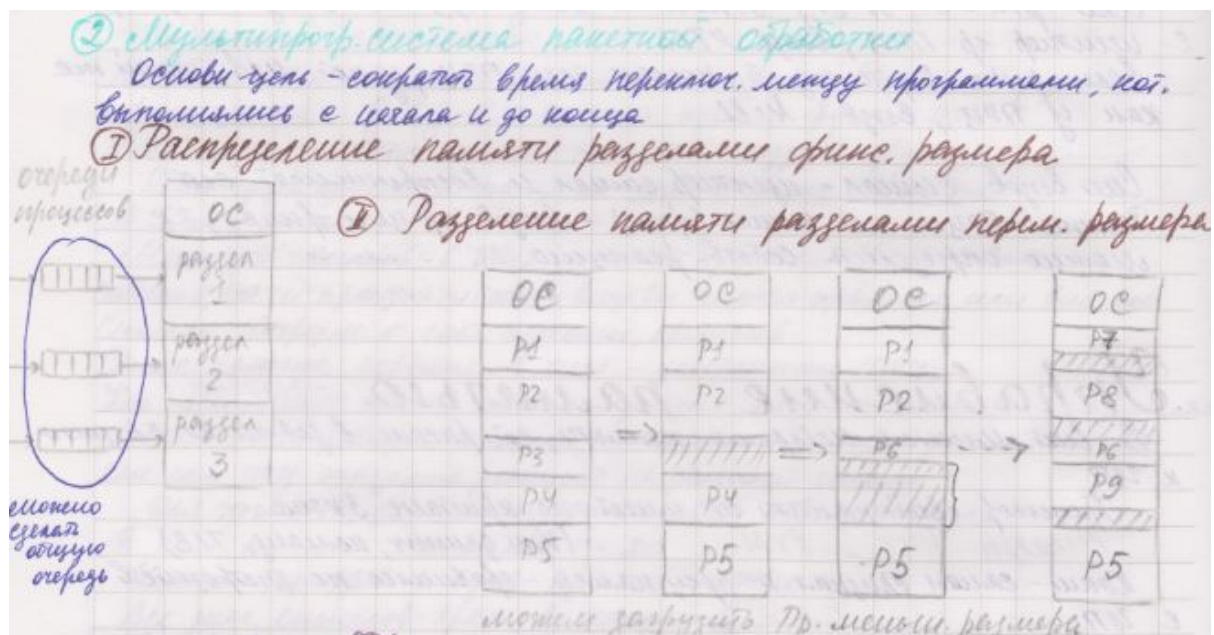 ② Мультипрогр. система пакетной обработки
Основн. цель - сократить время переключ. между программами, кот.
выполнялись с начала и до конца
Ⅰ Распределение памяти разделами фикс. размера
очереди
процессов
ОС
раздел
1
раздел
2
раздел
3
можно
сделать
общую
очередь
Ⅱ Разделение памяти разделами перем. размера
ОС
P1
P2
P3
P4
P5
ОС
P1
P2
P4
P5
ОС
P1
P2
P6
P5
ОС
P7
P8
P6
P9
P5
можем загрузить Пр. меньш. размера